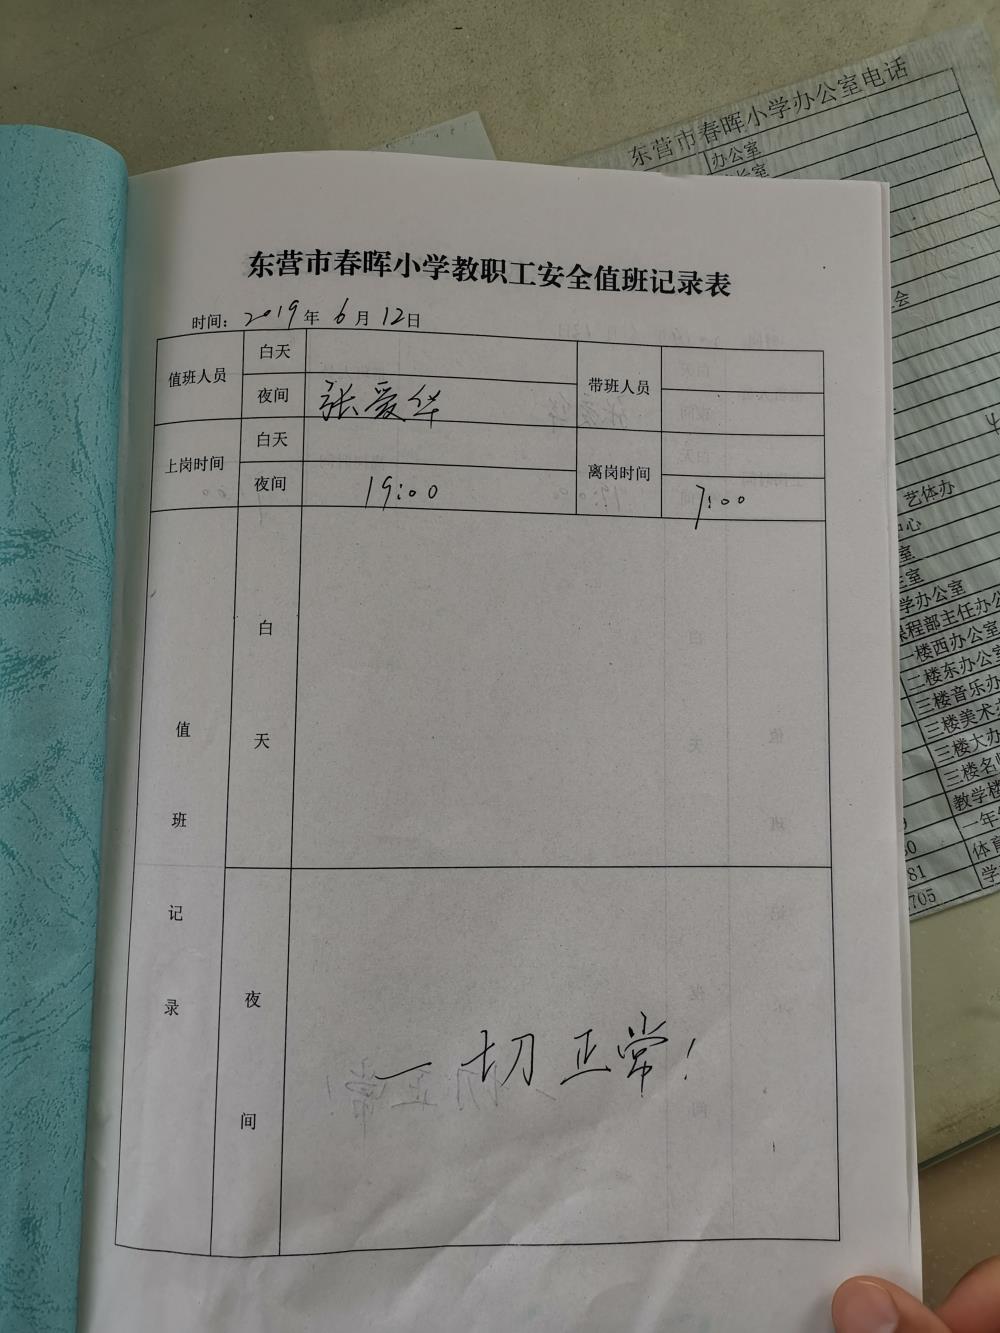 东营市春晖小学办公室电话
办公室
东营市春晖小学教职工安全值班记录表
时间：2019年6月12日
值班人员 白天 带班人员
夜间 张爱华
上岗时间 白天 离岗时间
夜间 19:00 7:00
值班记录
白天
夜间
一切正常！
艺体办
学办公室
课程部主任办公
一楼西办公室
二楼东办公室
三楼音乐办
三楼美术
三楼大办
三楼名师
教学楼
一年
体育
81
705